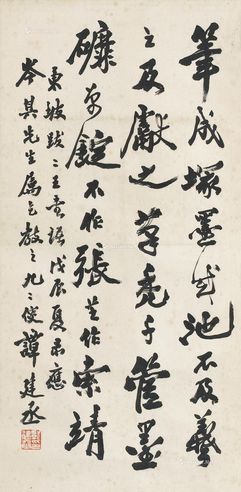 筆成塚墨成池不及羲
之及獻之筆禿千管墨
磨万錠不作張芝作索靖
東坡跋二王書語戊辰夏 應
岑其先生屬乞教之九二傁譚建丞